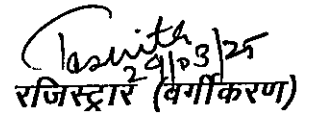 29/03/25
रजिस्ट्रार (वर्गीकरण)